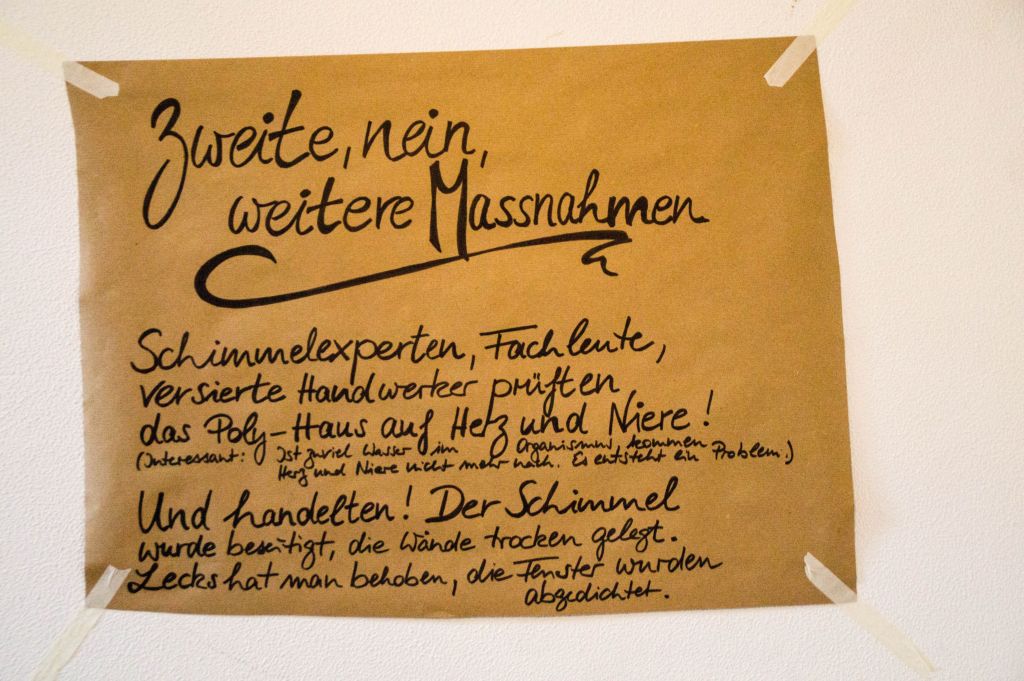 Zweite, nein,
weitere Massnahmen
Schimmelexperten, Fachleute,
versierte Handwerker prüften
das Poly-Haus auf Herz und Niere!
(Interessant: Ist zuviel Wasser im Organismus, kommen
Herz und Niere nicht mehr nach. Es entsteht ein Problem.)
Und handelten! Der Schimmel
wurde beseitigt, die Wände trocken gelegt.
Lecks hat man behoben, die Fenster wurden
abgedichtet.